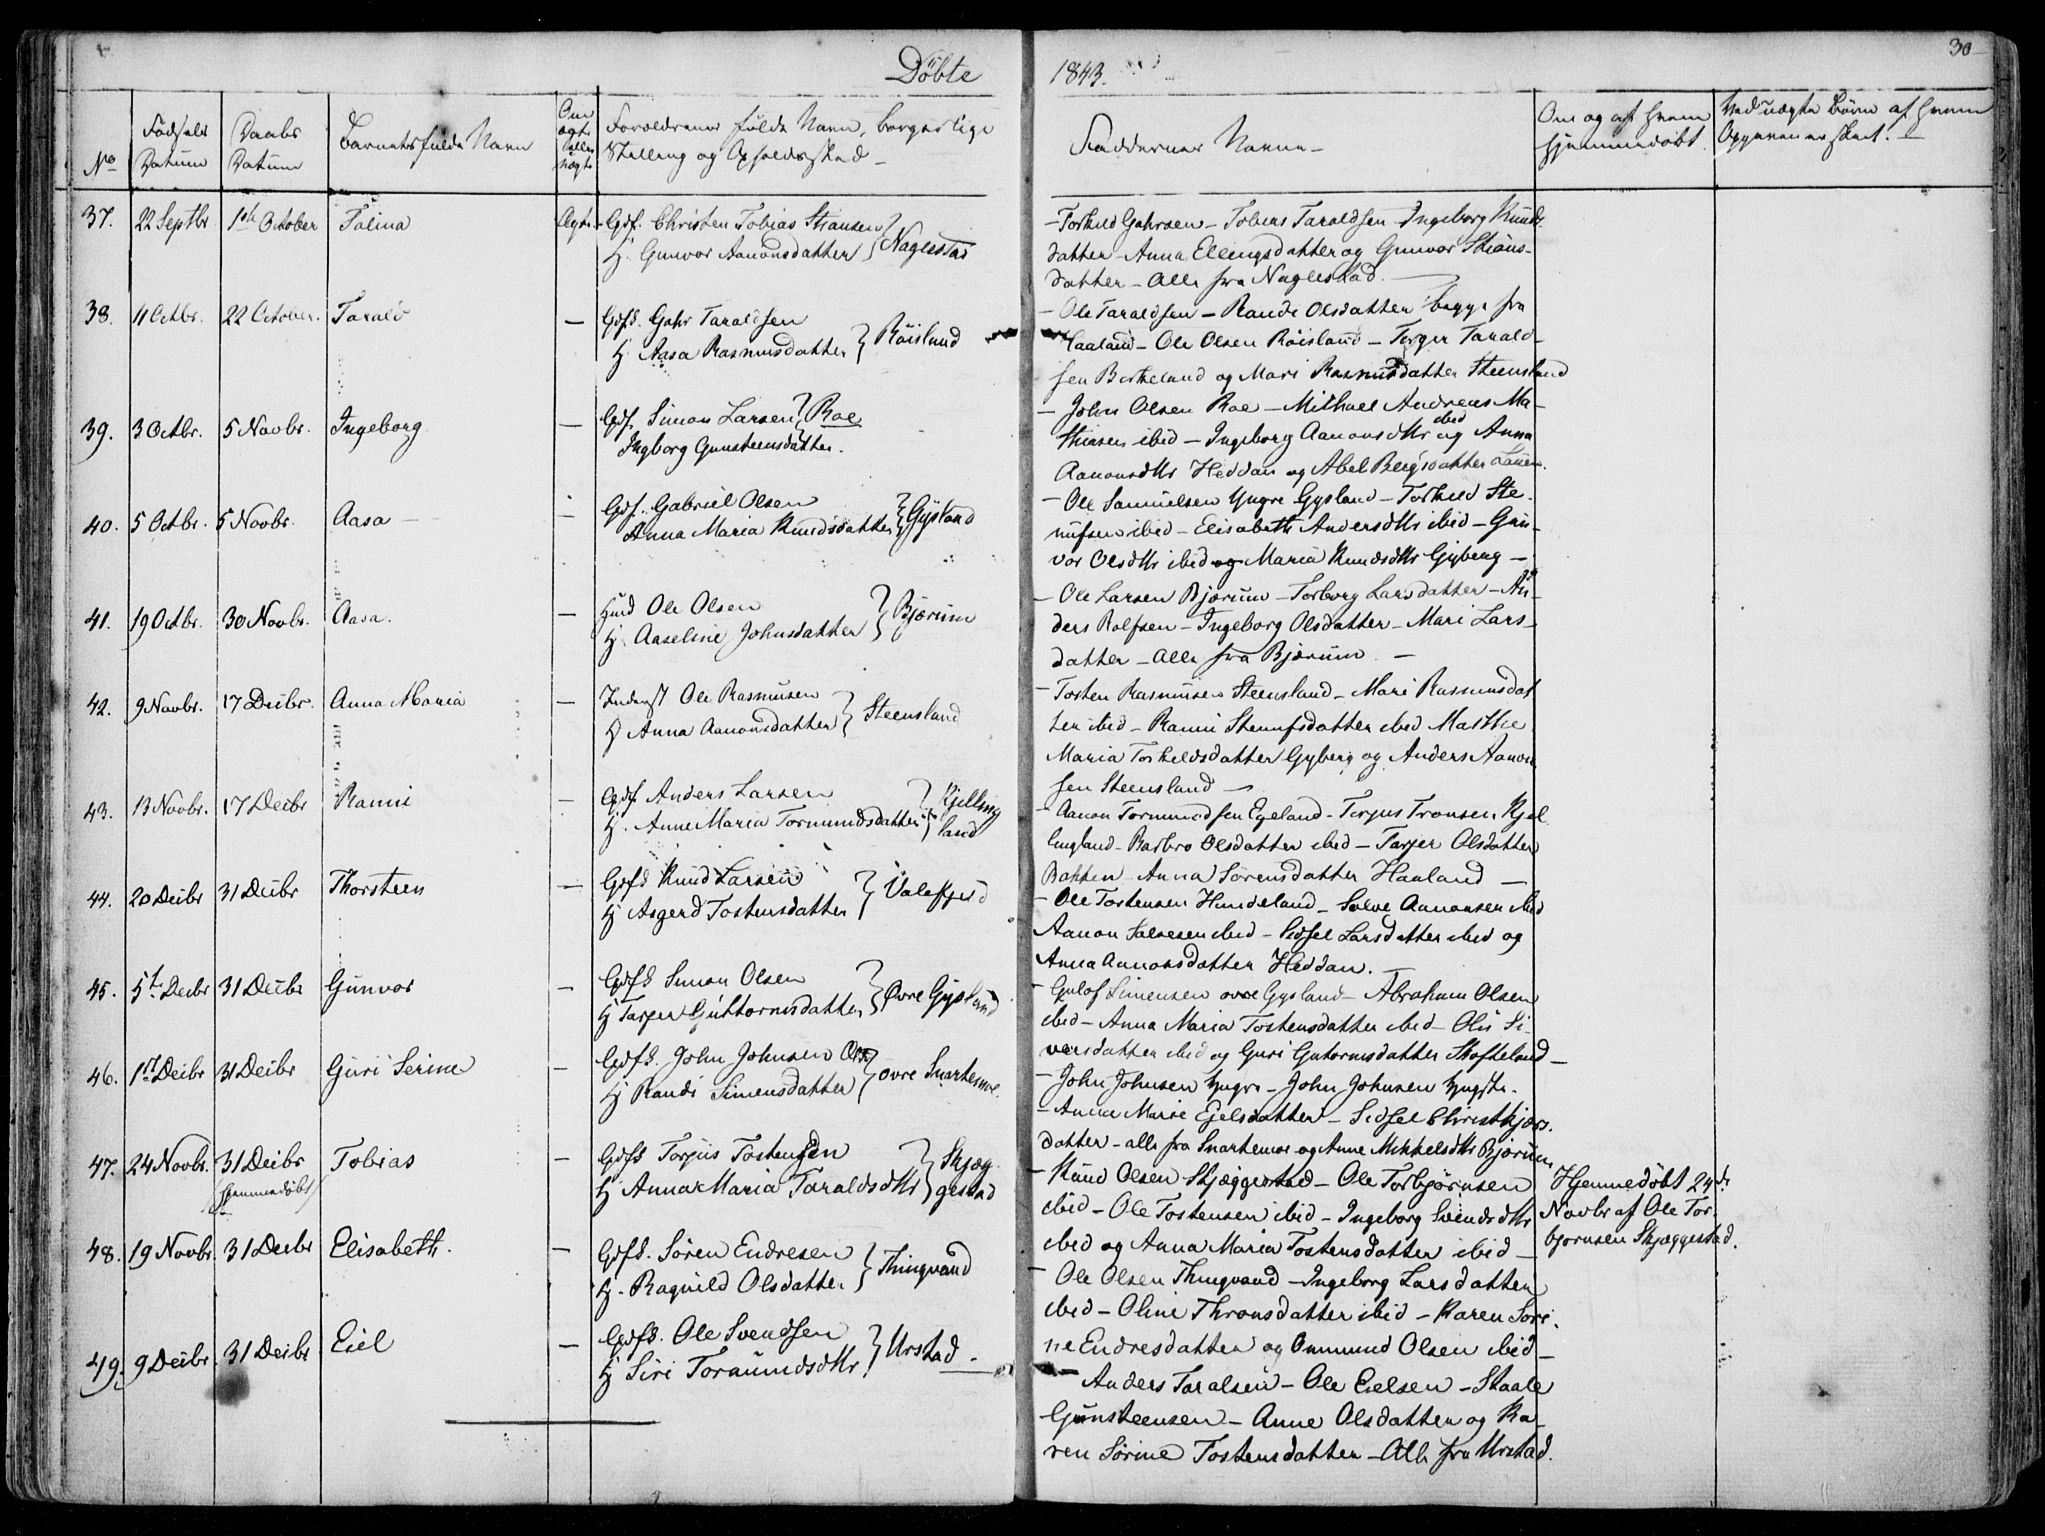 Döbte 1843.
30
No
Födsels Datum
Daabs Datum
Barnets fulde Navn
Om ægte eller uægte
Forældrenes fulde Navn, borgerlige
Stilling og Opholdssted
Faddernes Navne
Om og af hvem hjemmedöbt.
Ved uægte Börn af hvem Opgaven er skeet.
37. 22 Septbr 1ste October Talina Ægte Gdf. Christen Tobias Stiansen
H. Gunvor Aanonsdatter } Naglestad
- Torkild Gahrsen - Tobias Taraldsen - Ingeborg Knuds-
datter - Anna Ellingsdatter og Gunvor Stians-
datter - Alle fra Naglestad.
38. 11 Octbr. 22 October. Tarald - Gdfd. Gahr Taraldsen
H. Aasa Rasmusdatter } Röisland
- Ole Taraldsen - Rande Olsdatter begge fra
Haaland - Ole Olsen Röisland - Torger Tarald-
sen Birkeland og Mari Rasmusdatter Steensland
39. 3 Octbr. 5 Novbr. Ingeborg - Gdf. Simon Larsen } Roe
Ingborg Gunsteensdatter.
- John Olsen Roe - Mithael Andreas Ma-
thiasen ibid - Ingeborg Aanonsdttr ibid og Anna
Aanonsdttr Heddan og Abel Bergsdatter Lauen.
40. 5 Octbr. 5 Novbr. Aasa - Gdf. Gabriel Olsen
Anna Maria Knudsdatter } Gysland
- Ole Samuelsen Yngre Gysland - Torkild Ste-
nufsen ibid - Elisabeth Andersdttr ibid - Gun-
vor Olsdttr ibid og Maria Knudsdttr Gyberg -
41. 19 Octbr. 30 Novbr. Aasa. - Huusmd Ole Olsen
H. Aaseline Johnsdatter } Bjærum
- Ole Larsen Bjærum - Torborg Larsdatter - An-
ders Rolfsen - Ingeborg Olsdatter - Mari Lars-
datter - Alle fra Bjærum. -
42. 9 Novbr. 17 Decbr. Anna Maria - Inderst Ole Rasmusen
H Anna Aanonsdatter } Steensland
- Tosten Rasmusen Steensland - Mari Rasmusdat
ter ibid - Ranni Stenufsdatter ibid Marthe
Maria Torkeldsdatter Gyberg og Anders Aanon
sen Steensland -
43. 13 Novbr. 17 Decbr Ranni - Gdf. Anders Larsen
H. Anne Maria Tormundsdatter } Kjelling
land
- Aanon Tormundsen Egeland - Torjus Tronsen Kjel
lingland - Barbro Olsdatter ibid - Tarjer Olsdatter
Bakken - Anna Sörensdatter Haaland -
44. 20 Decbr 31 Decbr Thorsteen - Gdfd Knud Larsen
H Asgerd Tostensdatter } Valefjeld
- Ole Tostensen Hundeland - Solve Aanonsen ibid
Aanon Salvesen ibid - Sidsel Larsdatter ibid og
Anna Aanonsdatter Heddan. -
45. 5te Decbr 31 Decbr Gunvor - Gdfd Simon Olsen
H Tarjer Guttormsdatter } Övre Gysland
- Gulof Simensen övre Gysland - Abraham Olsen
ibid - Anna Maria Tostensdatter ibid - Oli Si-
versdatter ibid og Guri Gutormsdatter Skofteland -
46. 1ste Decbr 31 Decbr Guri Serine - Gdfd. John Johnsen
H Randi Simensdatter } övre Snartemoe.
- John Johnsen Yngre - John Johnsen Yngste.
- Anna Marie Ejelsdatter - Sidsel Christkjærs.
datter - alle fra Snartemoe og Anne Mikkelsdttr Bjærum
47. 24 Novbr. 31 Decbr Tobias - Gdfd Torjus Tostensen
(hjemmedöbt)
H Anna Maria Taraldsdttr } Skjæg
gestad
- Knud Olsen Skjæggestad - Ole Torbjörnsen
ibid - Ole Tostensen ibid - Ingeborg Svendsdttr
ibid og Anna Maria Tostensdatter ibid -
Hjemmedöbt 24de
Novbr af Ole Tor-
björnsen Skjæggestad.
48. 19 Novbr. 31 Decbr Elisabeth. - Gdfd. Sören Endresen
H. Ragnild Olsdatter } Thingvand
- Ole Olsen Thingvand - Ingeborg Larsdatter
ibid - Oline Thronsdatter ibid - Karen Sori-
ne Endresdatter og Ommund Olsen ibid -
49. 9 Decbr. 31 Decbr Eiel - Gdfd. Ole Svendsen
H Siri Toraümdsdttr. } Urstad -
- Anders Taralsen - Ole Eielsen - Staale
Gunsteensen - Anne Olsdatter og Ka-
ren Sörine Tostensdatter - Alle fra Urstad.